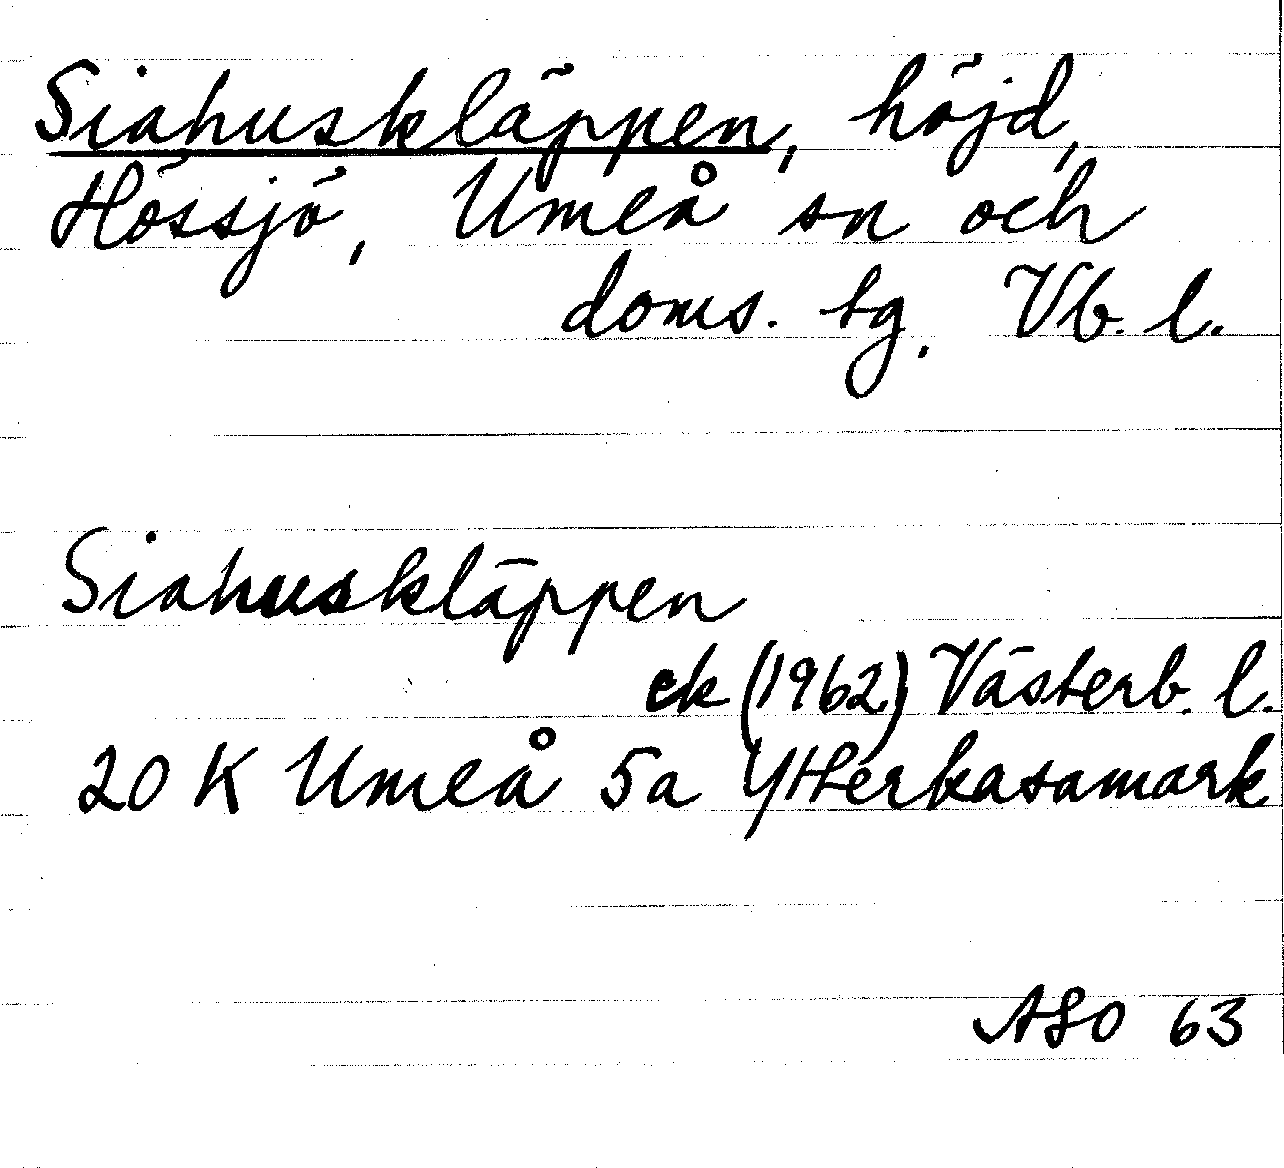 Siahuskläppen, höjd,
Hössjö, Umeå sn och
doms. tg. Vb. l.
Siahuskläppen
ek (1962) Västerb. l.
20 K Umeå 5a Ytterkasamark
ASO 63